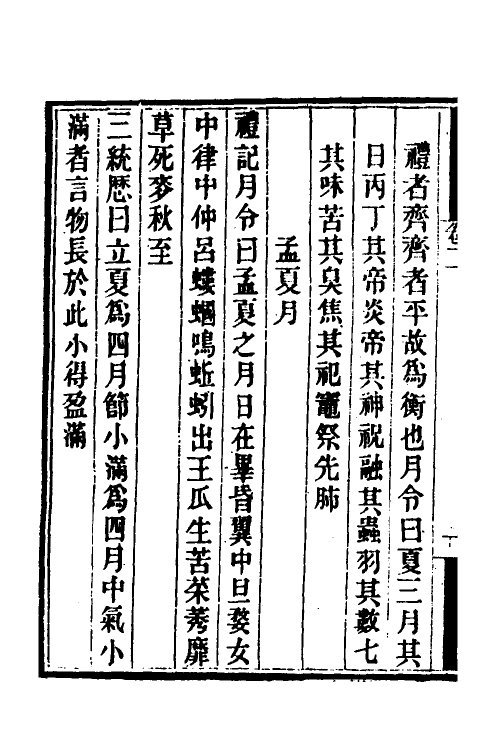 禮者齊齊者平故為衡也月令曰夏三月其
日丙丁其帝炎帝其神祝融其蟲羽其數七
其味苦其臭焦其祀竈祭先肺
孟夏月
禮記月令曰孟夏之月日在畢昏翼中旦婺女
中律中仲呂螻蟈鳴蚯蚓出王瓜生苦菜莠靡
草死麥秋至
三統厯曰立夏為四月節小滿為四月中氣小
滿者言物長於此小得盈滿